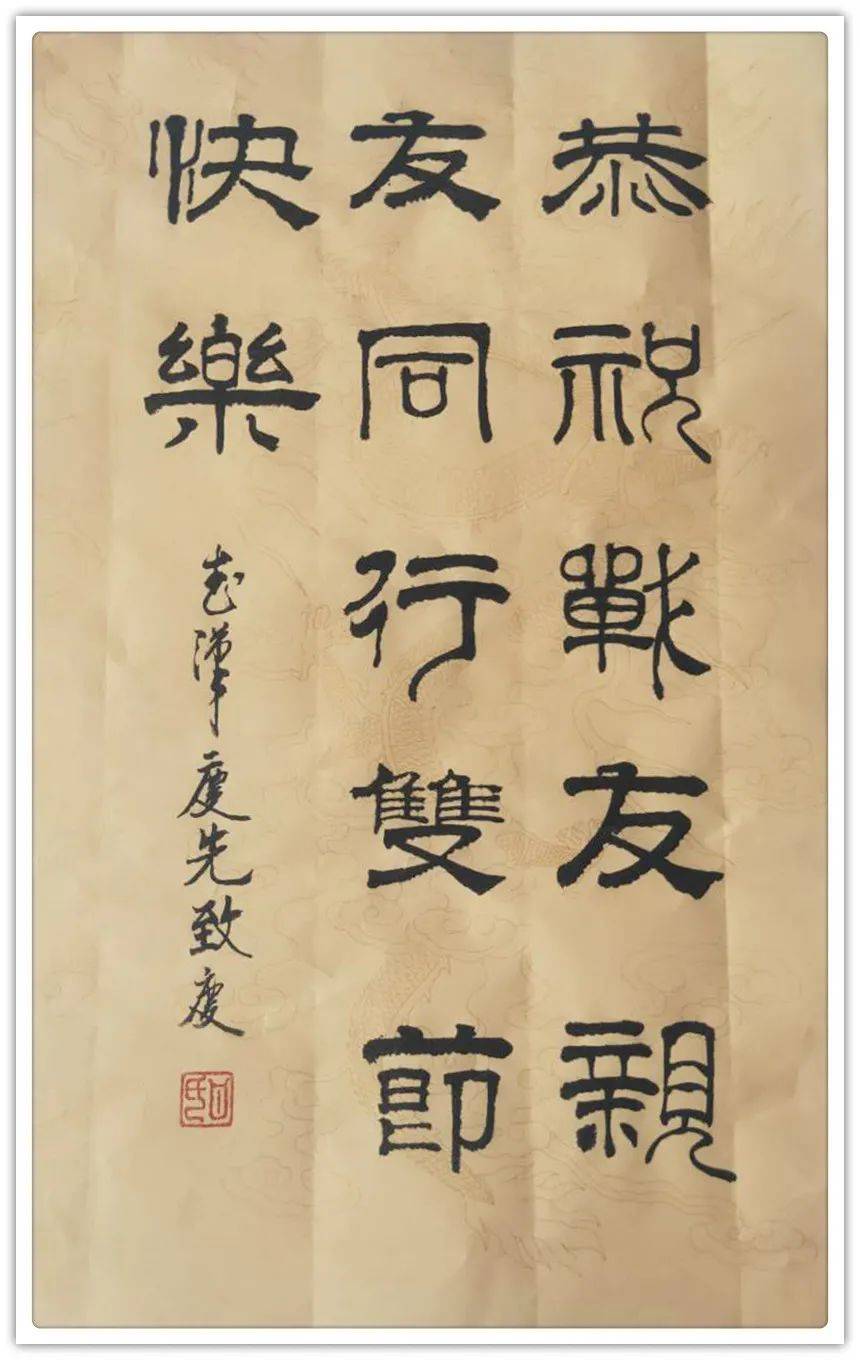 恭祝戰友親
友同行雙節
快樂
武漢慶先致慶